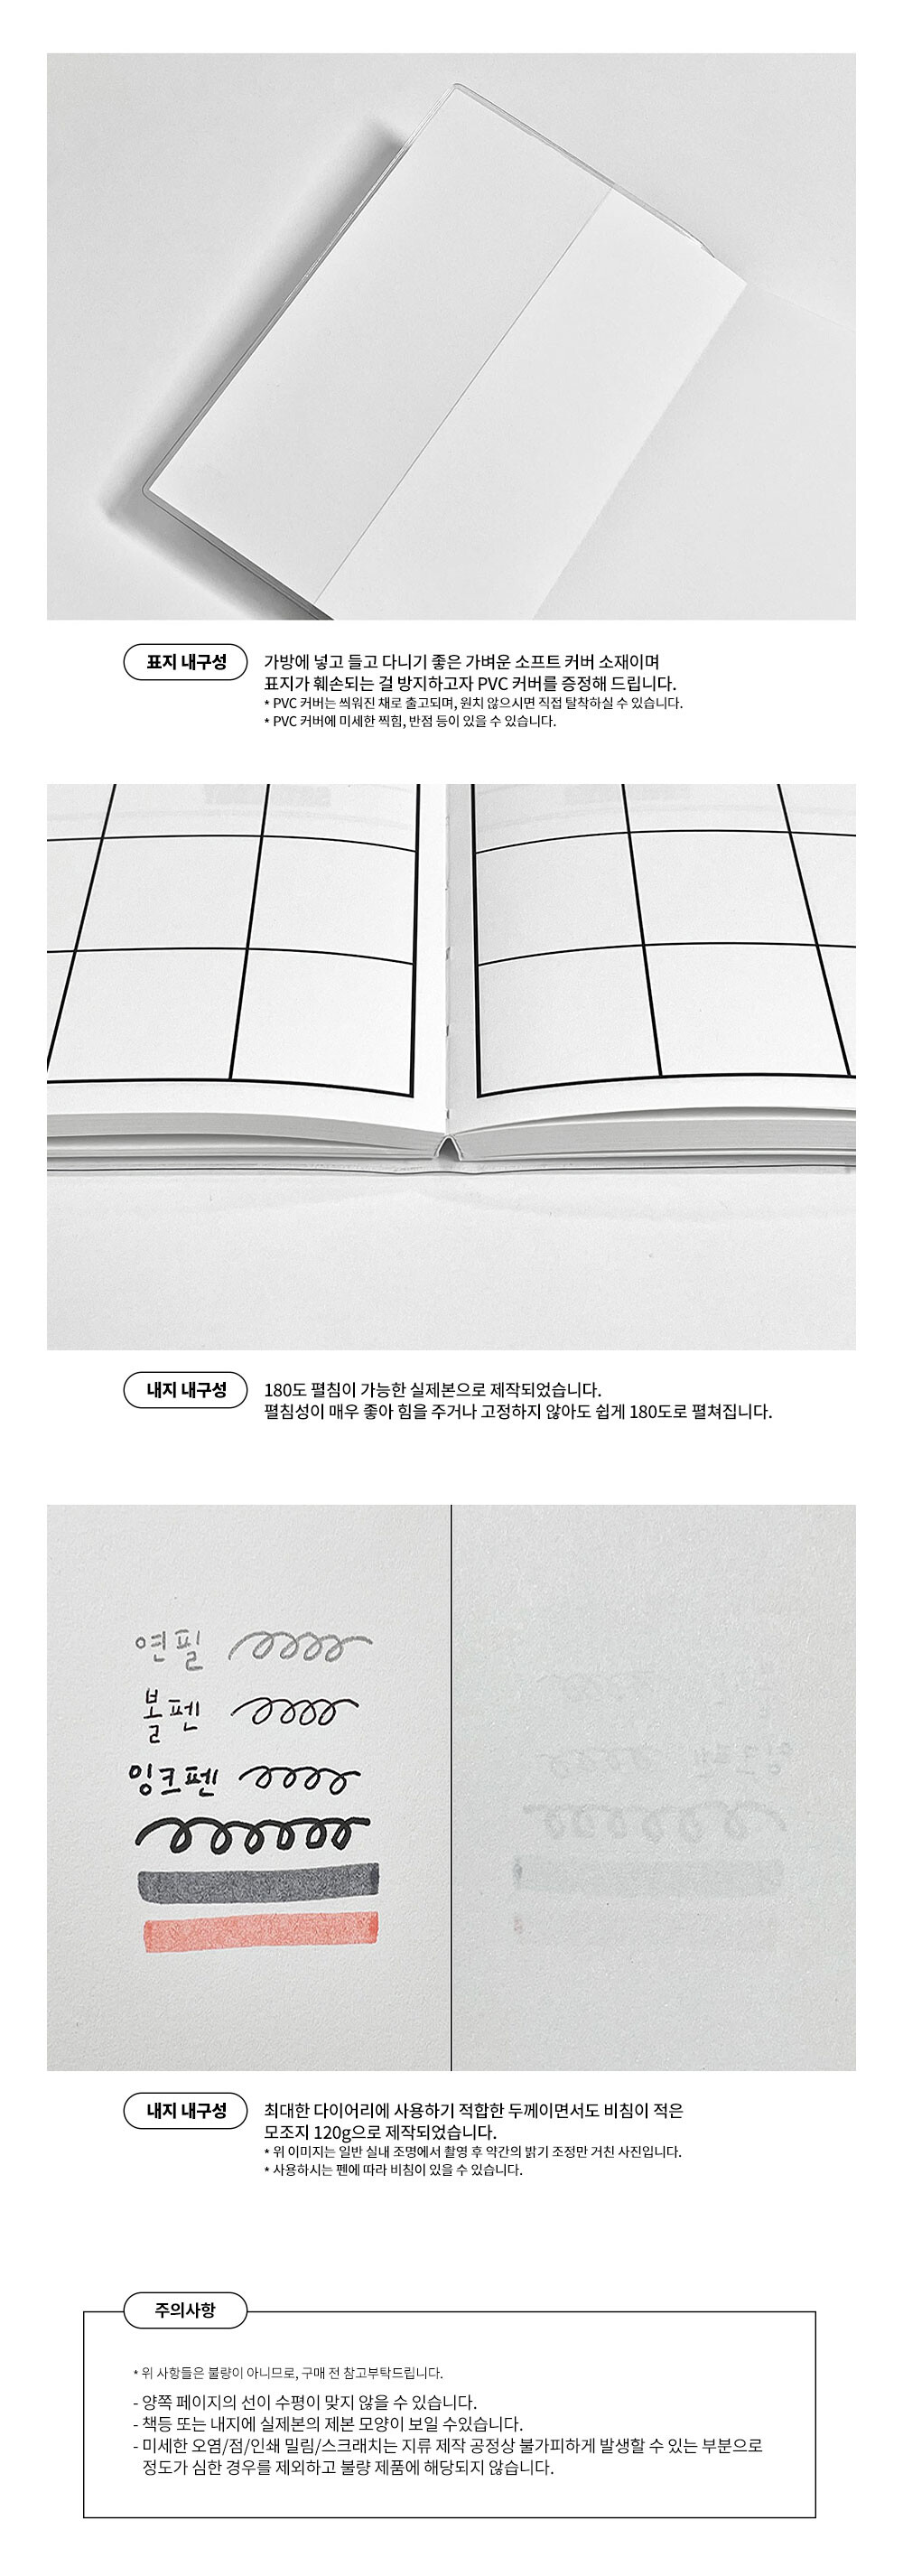 표지 내구성
가방에 넣고 들고 다니기 좋은 가벼운 소프트 커버 소재이며
표지가 훼손되는 걸 방지하고자 PVC 커버를 증정해 드립니다.
* PVC 커버는 씌워진 채로 출고되며, 원치 않으시면 직접 탈착하실 수 있습니다.
* PVC 커버에 미세한 찍힘, 반점 등이 있을 수 있습니다.
내지 내구성
180도 펼침이 가능한 실제본으로 제작되었습니다.
펼침성이 매우 좋아 힘을 주거나 고정하지 않아도 쉽게 180도로 펼쳐집니다.
연필
볼펜
잉크펜
내지 내구성
최대한 다이어리에 사용하기 적합한 두께이면서도 비침이 적은
모조지 120g으로 제작되었습니다.
* 위 이미지는 일반 실내 조명에서 촬영 후 약간의 밝기 조정만 거친 사진입니다.
* 사용하시는 펜에 따라 비침이 있을 수 있습니다.
주의사항
* 위 사항들은 불량이 아니므로, 구매 전 참고부탁드립니다.
- 양쪽 페이지의 선이 수평이 맞지 않을 수 있습니다.
- 책등 또는 내지에 실제본의 제본 모양이 보일 수있습니다.
- 미세한 오염/점/인쇄 밀림/스크래치는 지류 제작 공정상 불가피하게 발생할 수 있는 부분으로
정도가 심한 경우를 제외하고 불량 제품에 해당되지 않습니다.